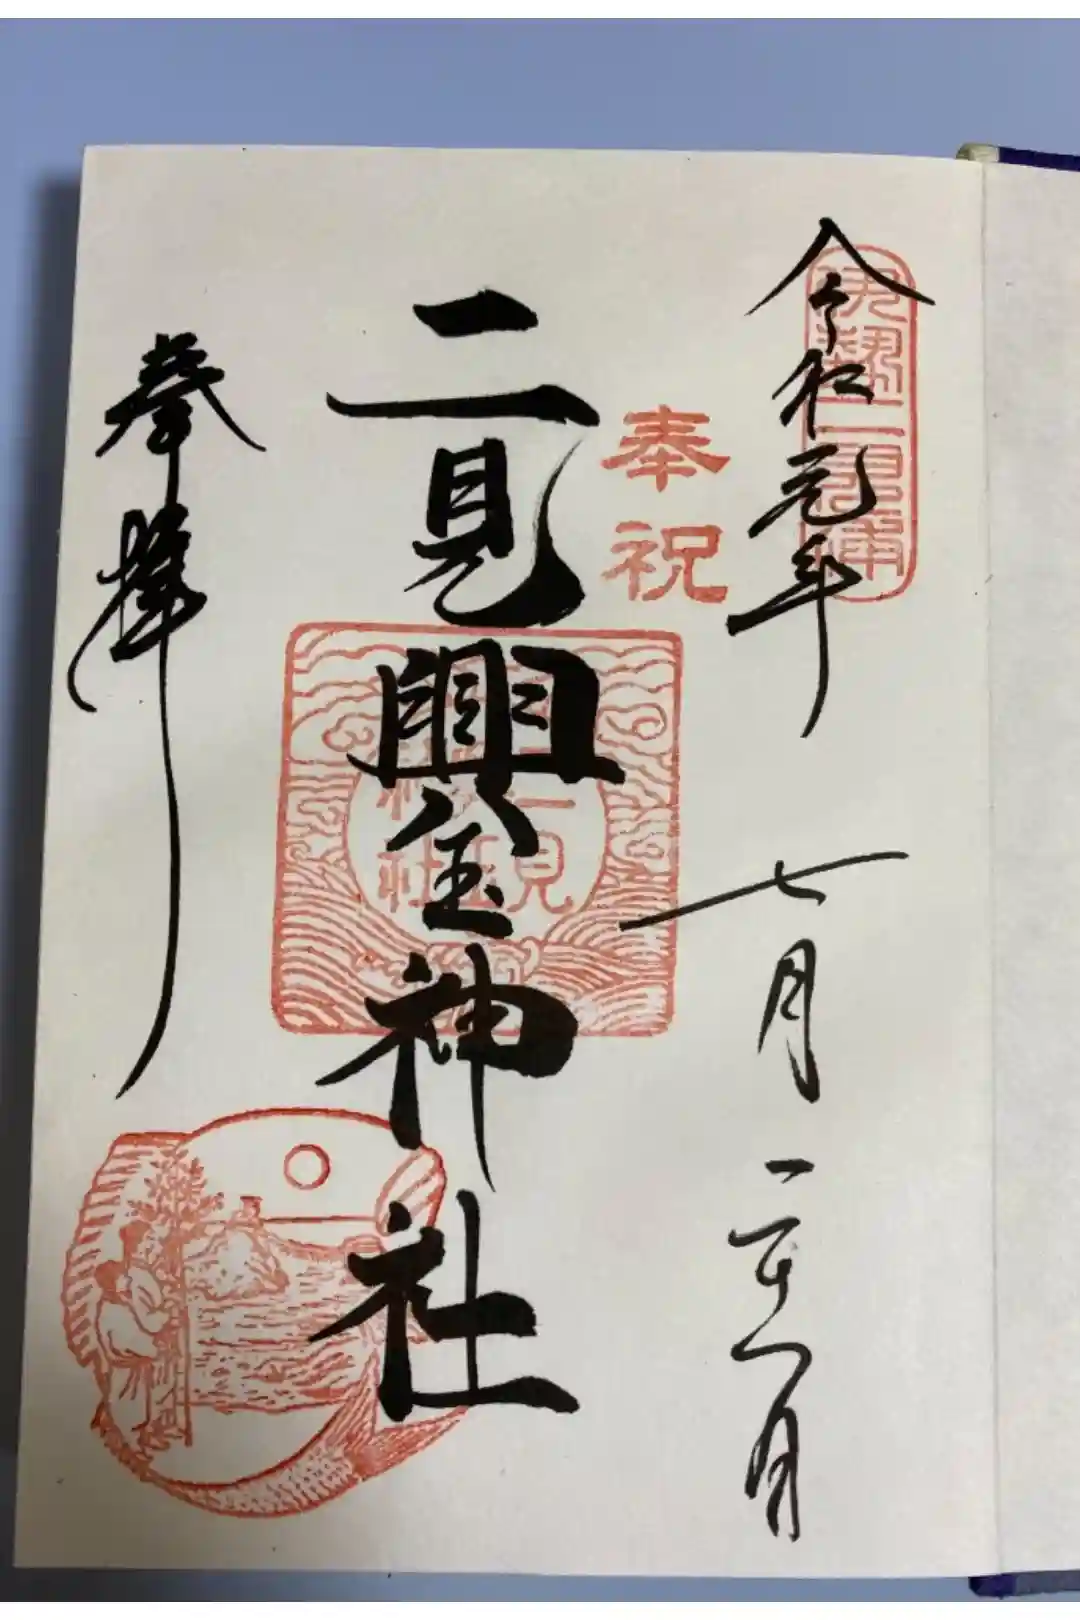 伊勢二見浦
令和元年
七月二十一日
奉祝
二見興玉神社
二見興玉神社
奉拝